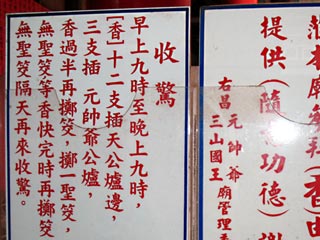 收驚
早上九時至晚上九時，
[香]十二支插天公爐邊，
三支插 元帥爺公爐，
香過半再擲筊，擲一聖筊，
無聖筊等香快完時再擲筊
無聖筊隔天再來收驚。
提供（隨喜功德）謝
右昌 元帥爺 三山國王 廟管理委